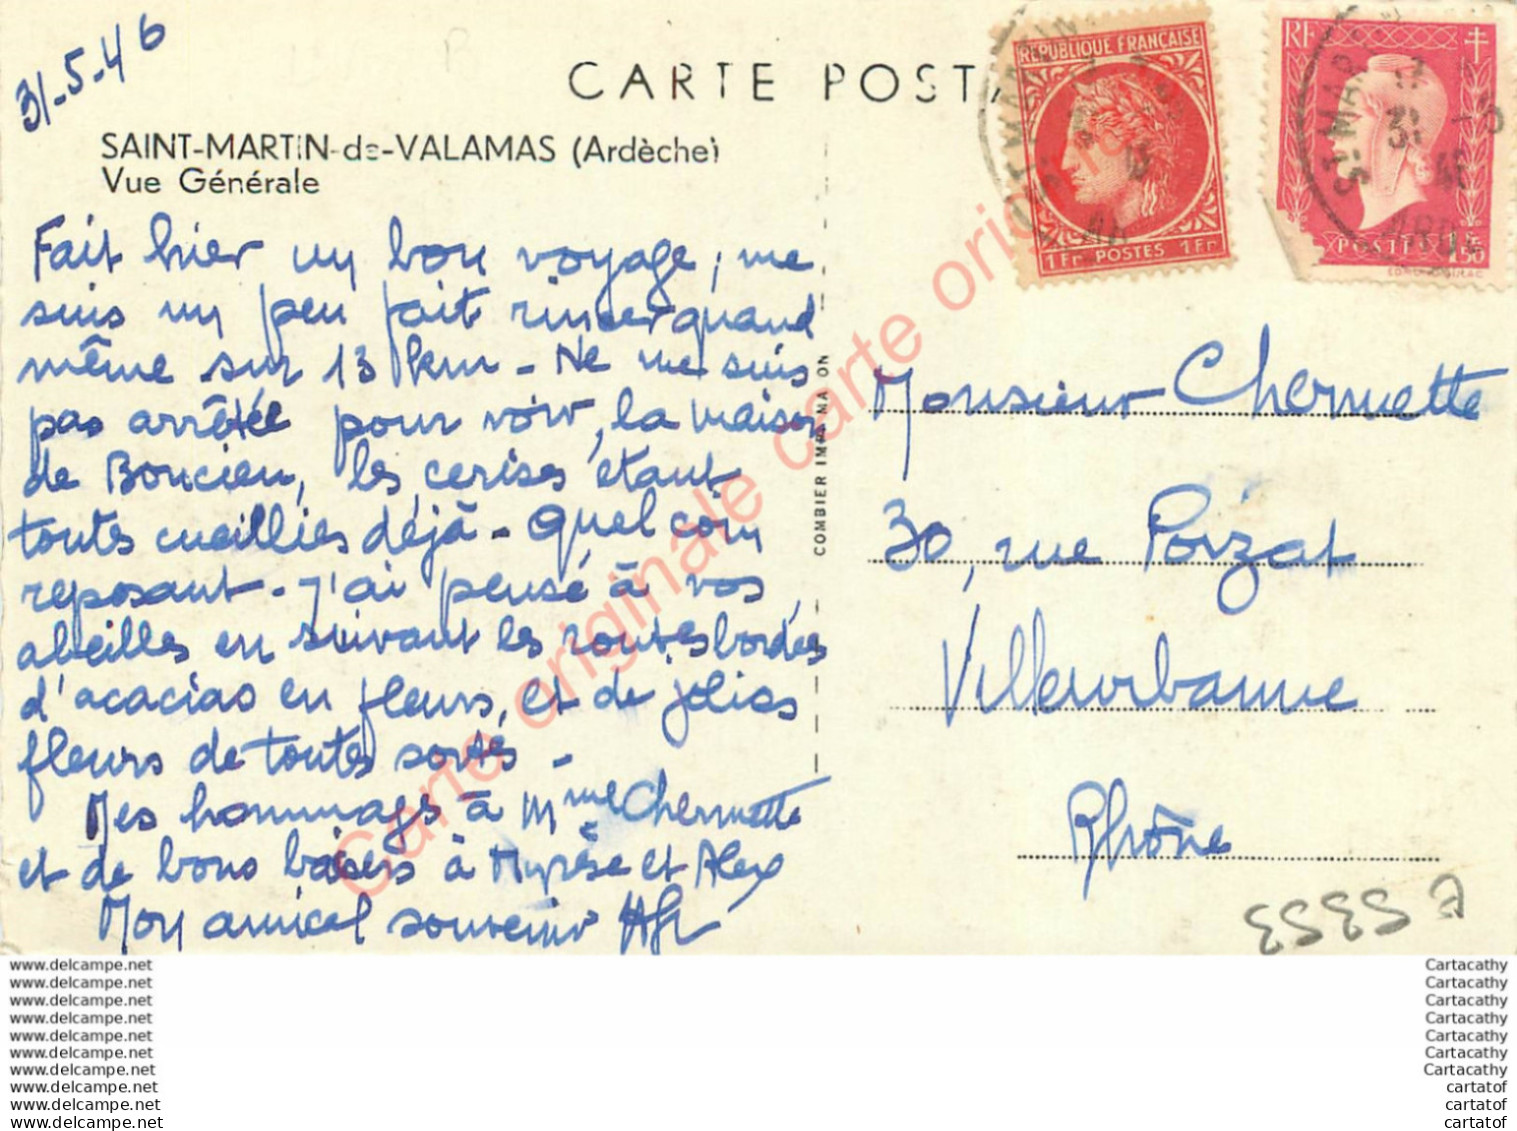 31-5-46
CARTE POST
SAINT-MARTIN-de-VALAMAS (Ardèche)
Vue Générale
Fait hier un bon voyage, me
suis un peu fait rincer quand
même sur 13 km - Ne me suis
pas arrêtée pour voir, la maison
de Boucieu, les cerises étant
toutes cueillies déjà - Quel coin
reposant - J'ai pensé à vos
abeilles en suivant les routes bordées
d'acacias en fleurs, et de jolies
fleurs de toutes sortes -
Mes hommages à Mme Chermette
et de bons baisers à Myrèse et Alex
Mon amical souvenir
COMBIER IMP. MACON
REPUBLIQUE FRANÇAISE
1Fr POSTES 1Fr
RF
POSTES 1F50
ST-MARTIN
31
46
Monsieur Chermette
30, rue Poizat
Villeurbanne
Rhône
Carte originale carte originale
www.delcampe.net
www.delcampe.net
www.delcampe.net
www.delcampe.net
www.delcampe.net
www.delcampe.net
www.delcampe.net
www.delcampe.net
www.delcampe.net
www.delcampe.net
Cartacathy
Cartacathy
Cartacathy
Cartacathy
Cartacathy
Cartacathy
Cartacathy
cartatof
cartatof
cartatof